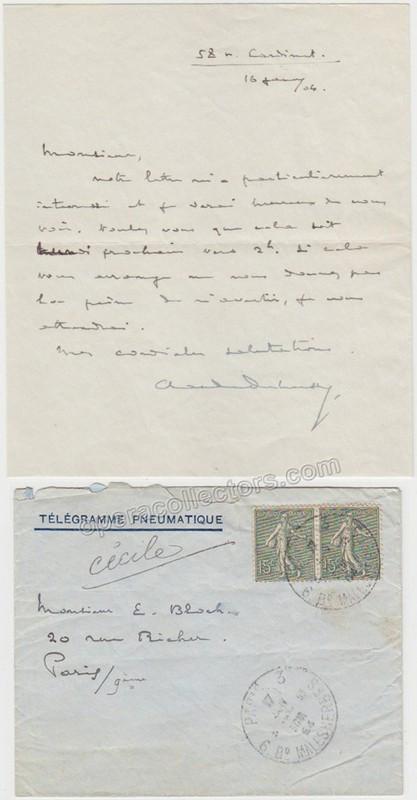 58 r. Cardinet.
16 janv/04.
Monsieur,
votre lettre m'a particulièrement
intéressé et je serai heureux de vous
voir. Voulez vous que cela soit
prochain vers 2h. Si cela
vous arrange ne vous donnez pas
la peine de m'avertir, je vous
attendrai.
Mes cordiales salutations.
Claude Debussy
operacollectors.com
TÉLÉGRAMME PNEUMATIQUE
Cécile
15 15
Monsieur E. Bloch.
20 rue Richer.
Paris/9ème
PARIS 3
6. Bd MALESHERBES
6. Bd MALESHERBES